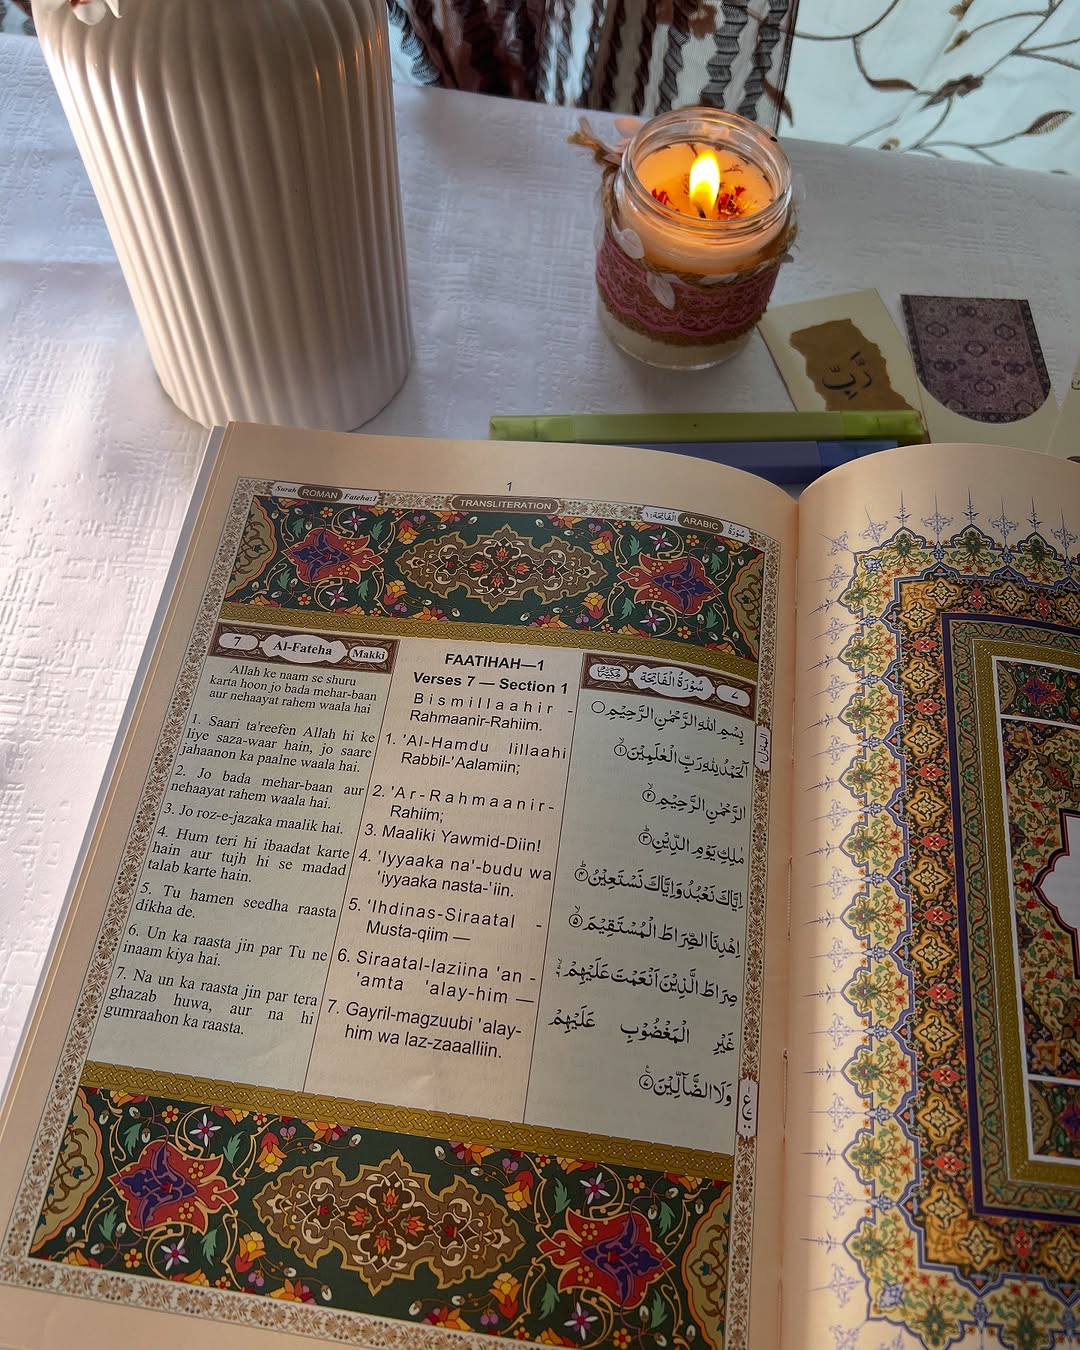 1
Surah ROMAN Fateha:1
TRANSLITERATION
سُورَةُ ARABIC الْفَاتِحَة:١
7 Al-Fateha Makki
Allah ke naam se shuru
karta hoon jo bada mehar-baan
aur nehaayat rahem waala hai
1. Saari ta'reefen Allah hi ke
liye saza-waar hain, jo saare
jahaanon ka paalne waala hai.
2. Jo bada mehar-baan aur
nehaayat rahem waala hai.
3. Jo roz-e-jazaka maalik hai.
4. Hum teri hi ibaadat karte
hain aur tujh hi se madad
talab karte hain.
5. Tu hamen seedha raasta
dikha de.
6. Un ka raasta jin par Tu ne
inaam kiya hai.
7. Na un ka raasta jin par tera
ghazab huwa, aur na hi
gumraahon ka raasta.
FAATIHAH—1
Verses 7 — Section 1
Bismillaahir -
Rahmaanir-Rahiim.
1. 'Al-Hamdu lillaahi
Rabbil-'Aalamiin;
2. 'Ar-Rahmaanir-
Rahiim;
3. Maaliki Yawmid-Diin!
4. 'Iyyaaka na'-budu wa
'iyyaaka nasta-'iin.
5. 'Ihdinas-Siraatal -
Musta-qiim —
6. Siraatal-laziina 'an -
'amta 'alay-him —
7. Gayril-magzuubi 'alay-
him wa laz-zaaalliin.
٧ سُوْرَةُ الْفَاتِحَةِ مَكِّيَّةٌ
بِسْمِ اللهِ الرَّحْمٰنِ الرَّحِيْمِ
اَلْحَمْدُ لِلّٰهِ رَبِّ الْعٰلَمِيْنَ ۙ﴿١﴾
الرَّحْمٰنِ الرَّحِيْمِ ۙ﴿٢﴾
مٰلِكِ يَوْمِ الدِّيْنِ ؕ﴿٣﴾
اِيَّاكَ نَعْبُدُ وَاِيَّاكَ نَسْتَعِيْنُ ؕ﴿٤﴾
اِهْدِنَا الصِّرَاطَ الْمُسْتَقِيْمَ ۙ﴿٥﴾
صِرَاطَ الَّذِيْنَ اَنْعَمْتَ عَلَيْهِمْ
غَيْرِ الْمَغْضُوْبِ عَلَيْهِمْ
وَلَا الضَّآلِّيْنَ ﴿٧﴾